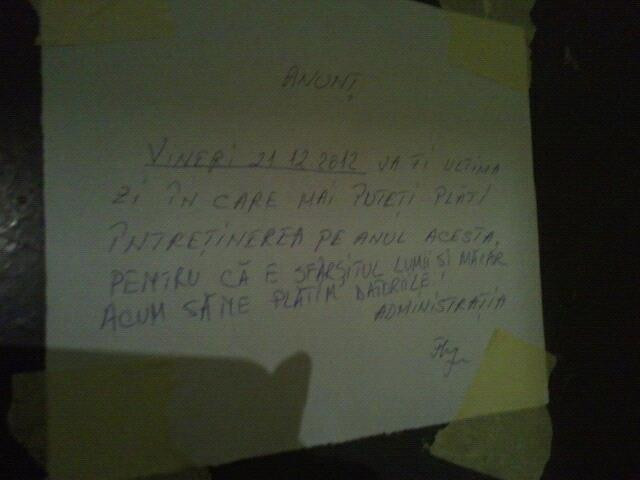 ANUNȚ
VINERI 21 12 2012 VA FI ULTIMA
ZI ÎN CARE MAI PUTEȚI PLĂTI
ÎNTREȚINEREA PE ANUL ACESTA,
PENTRU CĂ E SFÂRȘITUL LUMII SI MĂCAR
ACUM SĂ NE PLĂTIM DATORIILE!
ADMINISTRAȚIA